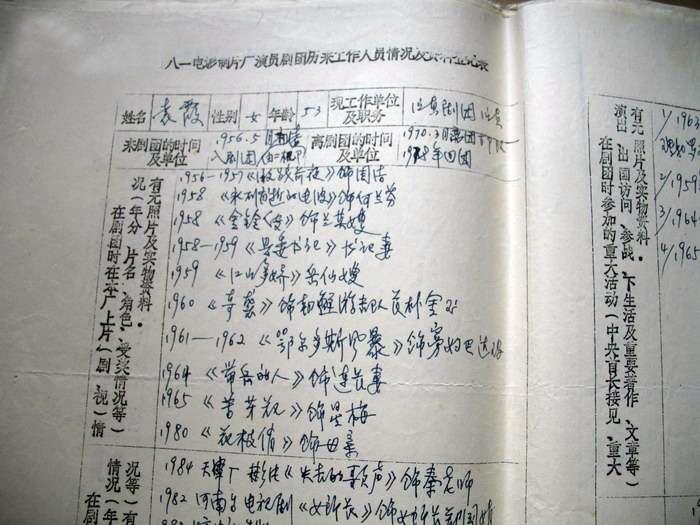 八一电影制片厂演员剧团历来工作人员情况及资料登记表
姓名 袁霞 性别 女 年龄 53 现工作单位及职务 演员剧团 演员
来剧团的时间及单位 1956.5 入剧团 离剧团的时间及单位 1970.3 1978年回团
有无照片及实物资料.
况(年分、片名、角色、受奖情况等)
在剧团时在本厂上片(剧、视)情
1956—1957《 前夜》饰国洁
1958《永不消逝的电波》饰何兰芬
1958《金铃传》饰兰英嫂
1958—1959《县委书记》书记妻
1959《江山多娇》岳仙嫂
1960《奇袭》饰朝鲜游击队员朴金
1961—1962《鄂尔多斯风暴》饰寡妇巴
1964《带兵的人》饰连长妻
1965《苦菜花》饰星梅
1980《花枝俏》饰母亲
况等)有
情况(年
在剧
1984 天津厂 《失去的 声》饰秦老师
1982 河南台电视剧《女所长》饰女所长
有无照片及实物资料.
演出、出国访问、参战、下生活及重要著作、文章等)
在剧团时参加的重大活动(中央首长接见、重大
1/1963
2/1959
3/1964
4/1965